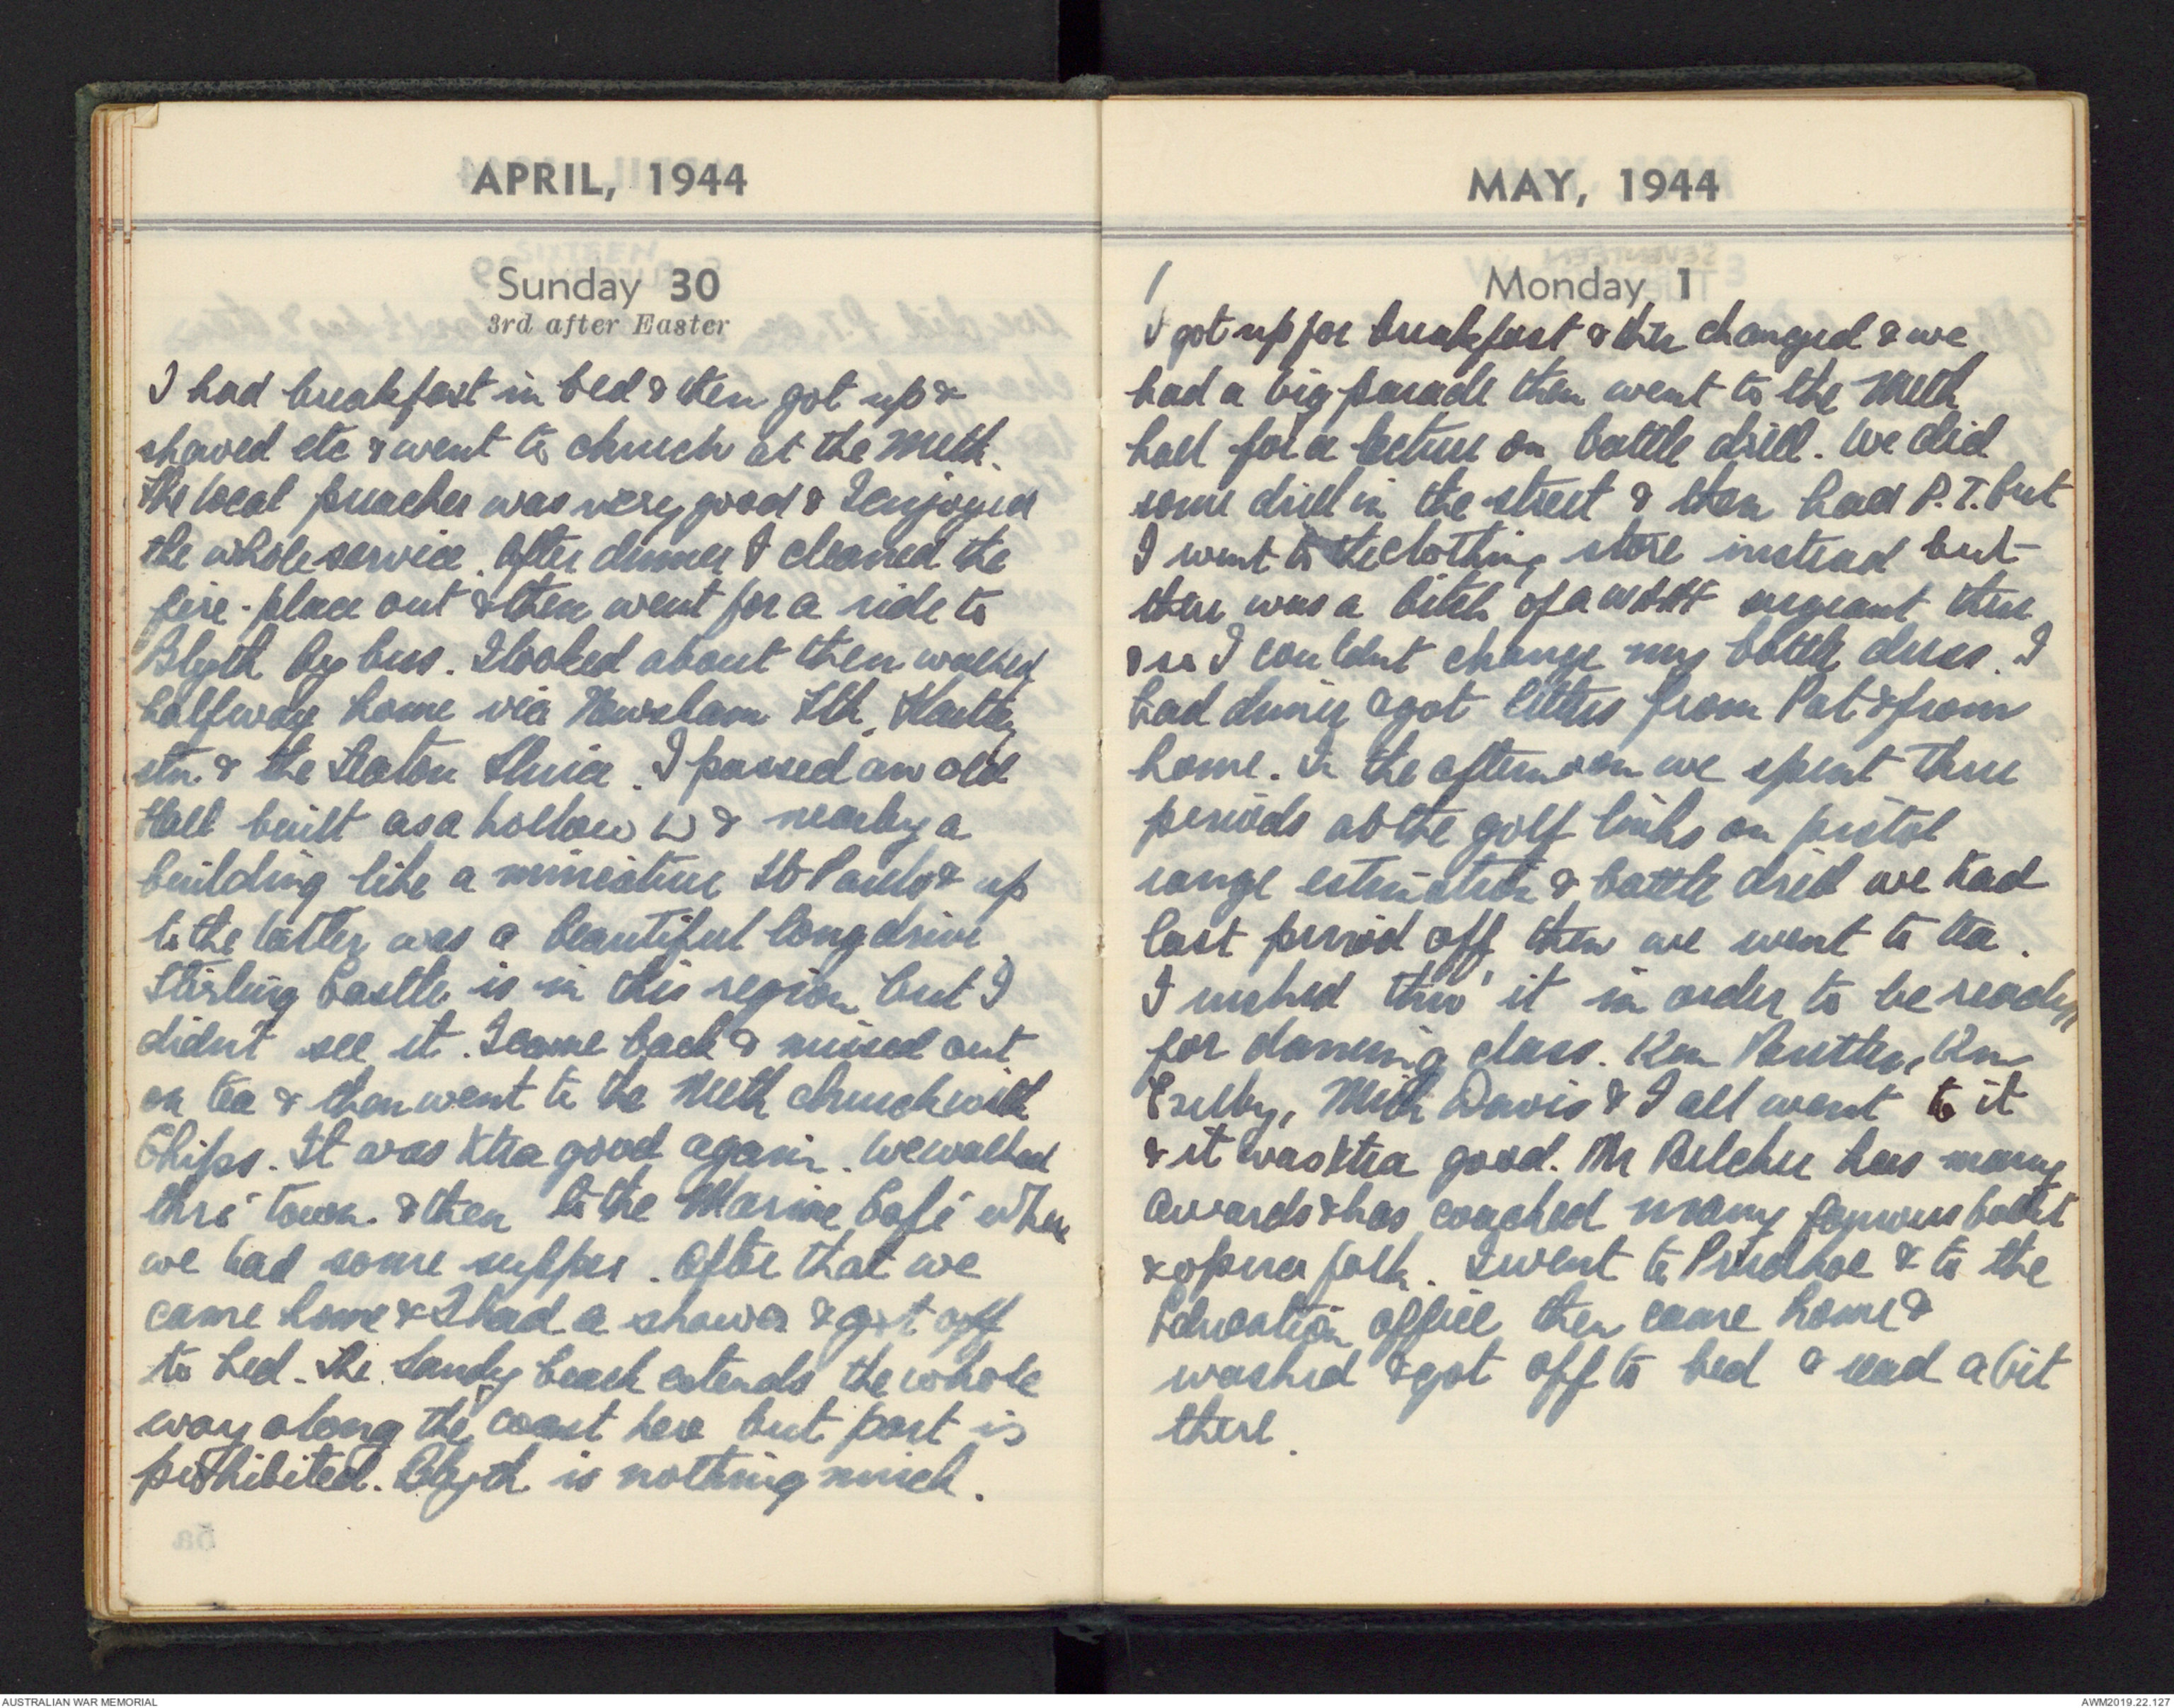 APRIL, 1944
Sunday 30
3rd after Easter
I had breakfast in bed & then got up &
shaved etc & went to church at the Meth.
The local preacher was very good & I enjoyed
the whole service. After dinner I cleaned the
fire-place out & then went for a ride to
Blyth by bus. I looked about then walked
halfway home via Newsham Sth, Hartley
stn. & the Seaton Sluice. I passed an old
Hall built as a hollow & nearby a
building like a miniature St Pauls & up
to the latter was a beautiful long drive
Stirling Castle is in this region but I
didn't see it. I came back & missed out
on tea & then went to the Meth church with
Chips. It was Xtra good again. We walked
thro' town. & then to the Marine Café where
we had some supper. After that we
came home & I had a shower & got off
to bed. The Sandy beach extends the whole
way along the coast here but part is
prohibited. Blyth is nothing much.
MAY, 1944
Monday 1
I got up for breakfast & then changed & we
had a big parade then went to the Meth
hall for a lecture on battle drill. We did
some drill in the street & then had P.T. but
I went to the clothing store instead but
there was a bitch of a sergeant there
& so I couldn't change my battle dress. I
had dinner & got letters from Pat & from
home. In the afternoon we spent three
periods at the golf links on pistol
range estimation & battle drill we had
last period off then we went to tea.
I rushed thro' it in order to be ready
for dancing class. Ken Ken
Exelby, Davis & I all went to it
& it was Xtra good. Mr Pilcher has many
awards & has coached many famous ballet
& opera folk. I went to Prudhoe & to the
Education office then came home &
washed & got off to bed & read a bit
there.
AUSTRALIAN WAR MEMORIAL
AWM2019.22.127